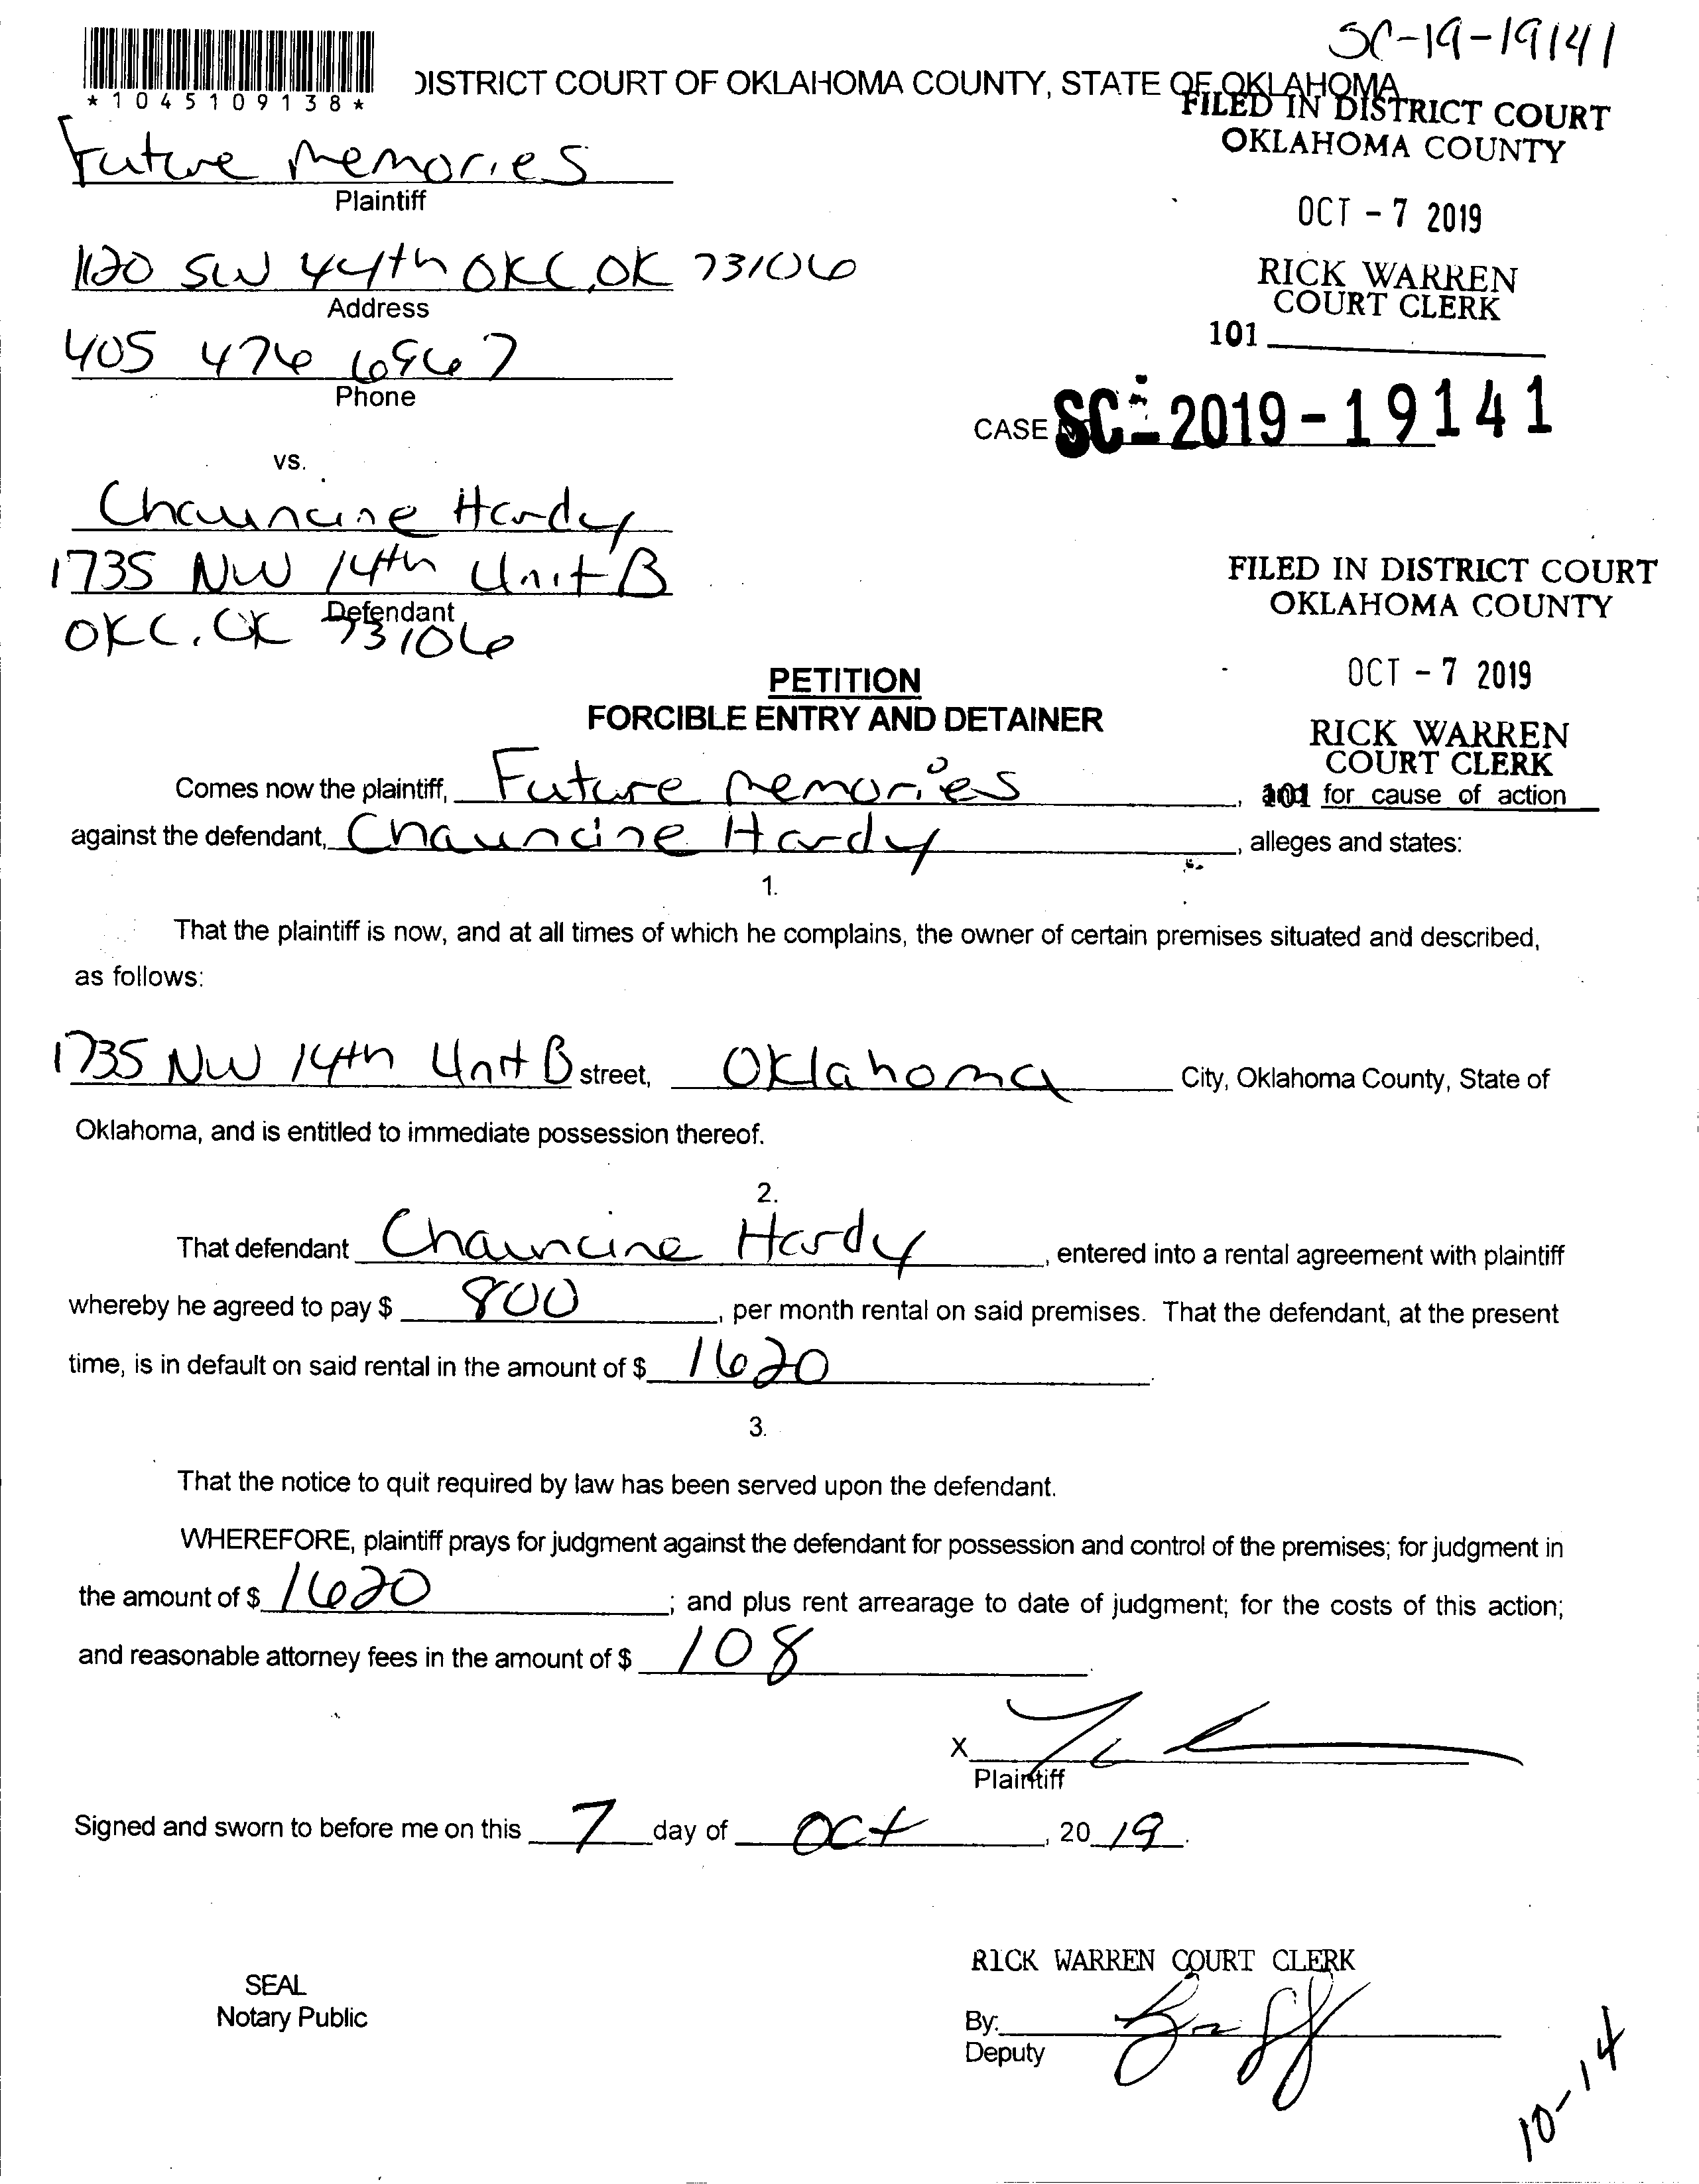 SC-19-19141
*1045109138*
DISTRICT COURT OF OKLAHOMA COUNTY, STATE OF OKLAHOMA
FILED IN DISTRICT COURT
OKLAHOMA COUNTY
Future Memories
Plaintiff
OCT - 7 2019
1120 SW 44th OKC, OK 73106
Address
RICK WARREN
COURT CLERK
101
405 476 6967
Phone
CASE SC-2019-19141
vs.
Chauncine Hardy
1735 NW 14th Unit B
Defendant
OKC. OK 73106
FILED IN DISTRICT COURT
OKLAHOMA COUNTY
OCT - 7 2019
RICK WARREN
COURT CLERK
PETITION
FORCIBLE ENTRY AND DETAINER
Comes now the plaintiff, Future Memories, 101 for cause of action
against the defendant, Chauncine Hardy, alleges and states:
1.
That the plaintiff is now, and at all times of which he complains, the owner of certain premises situated and described,
as follows:
1735 NW 14th Unit B street, Oklahoma City, Oklahoma County, State of
Oklahoma, and is entitled to immediate possession thereof.
2.
That defendant Chauncine Hardy, entered into a rental agreement with plaintiff
whereby he agreed to pay $ 800, per month rental on said premises. That the defendant, at the present
time, is in default on said rental in the amount of $ 1620.
3.
That the notice to quit required by law has been served upon the defendant.
WHEREFORE, plaintiff prays for judgment against the defendant for possession and control of the premises; for judgment in
the amount of $ 1620; and plus rent arrearage to date of judgment; for the costs of this action;
and reasonable attorney fees in the amount of $ 108.
X
Plaintiff
Signed and sworn to before me on this 7 day of Oct, 20 19.
RICK WARREN COURT CLERK
SEAL
Notary Public
By:
Deputy
10-14